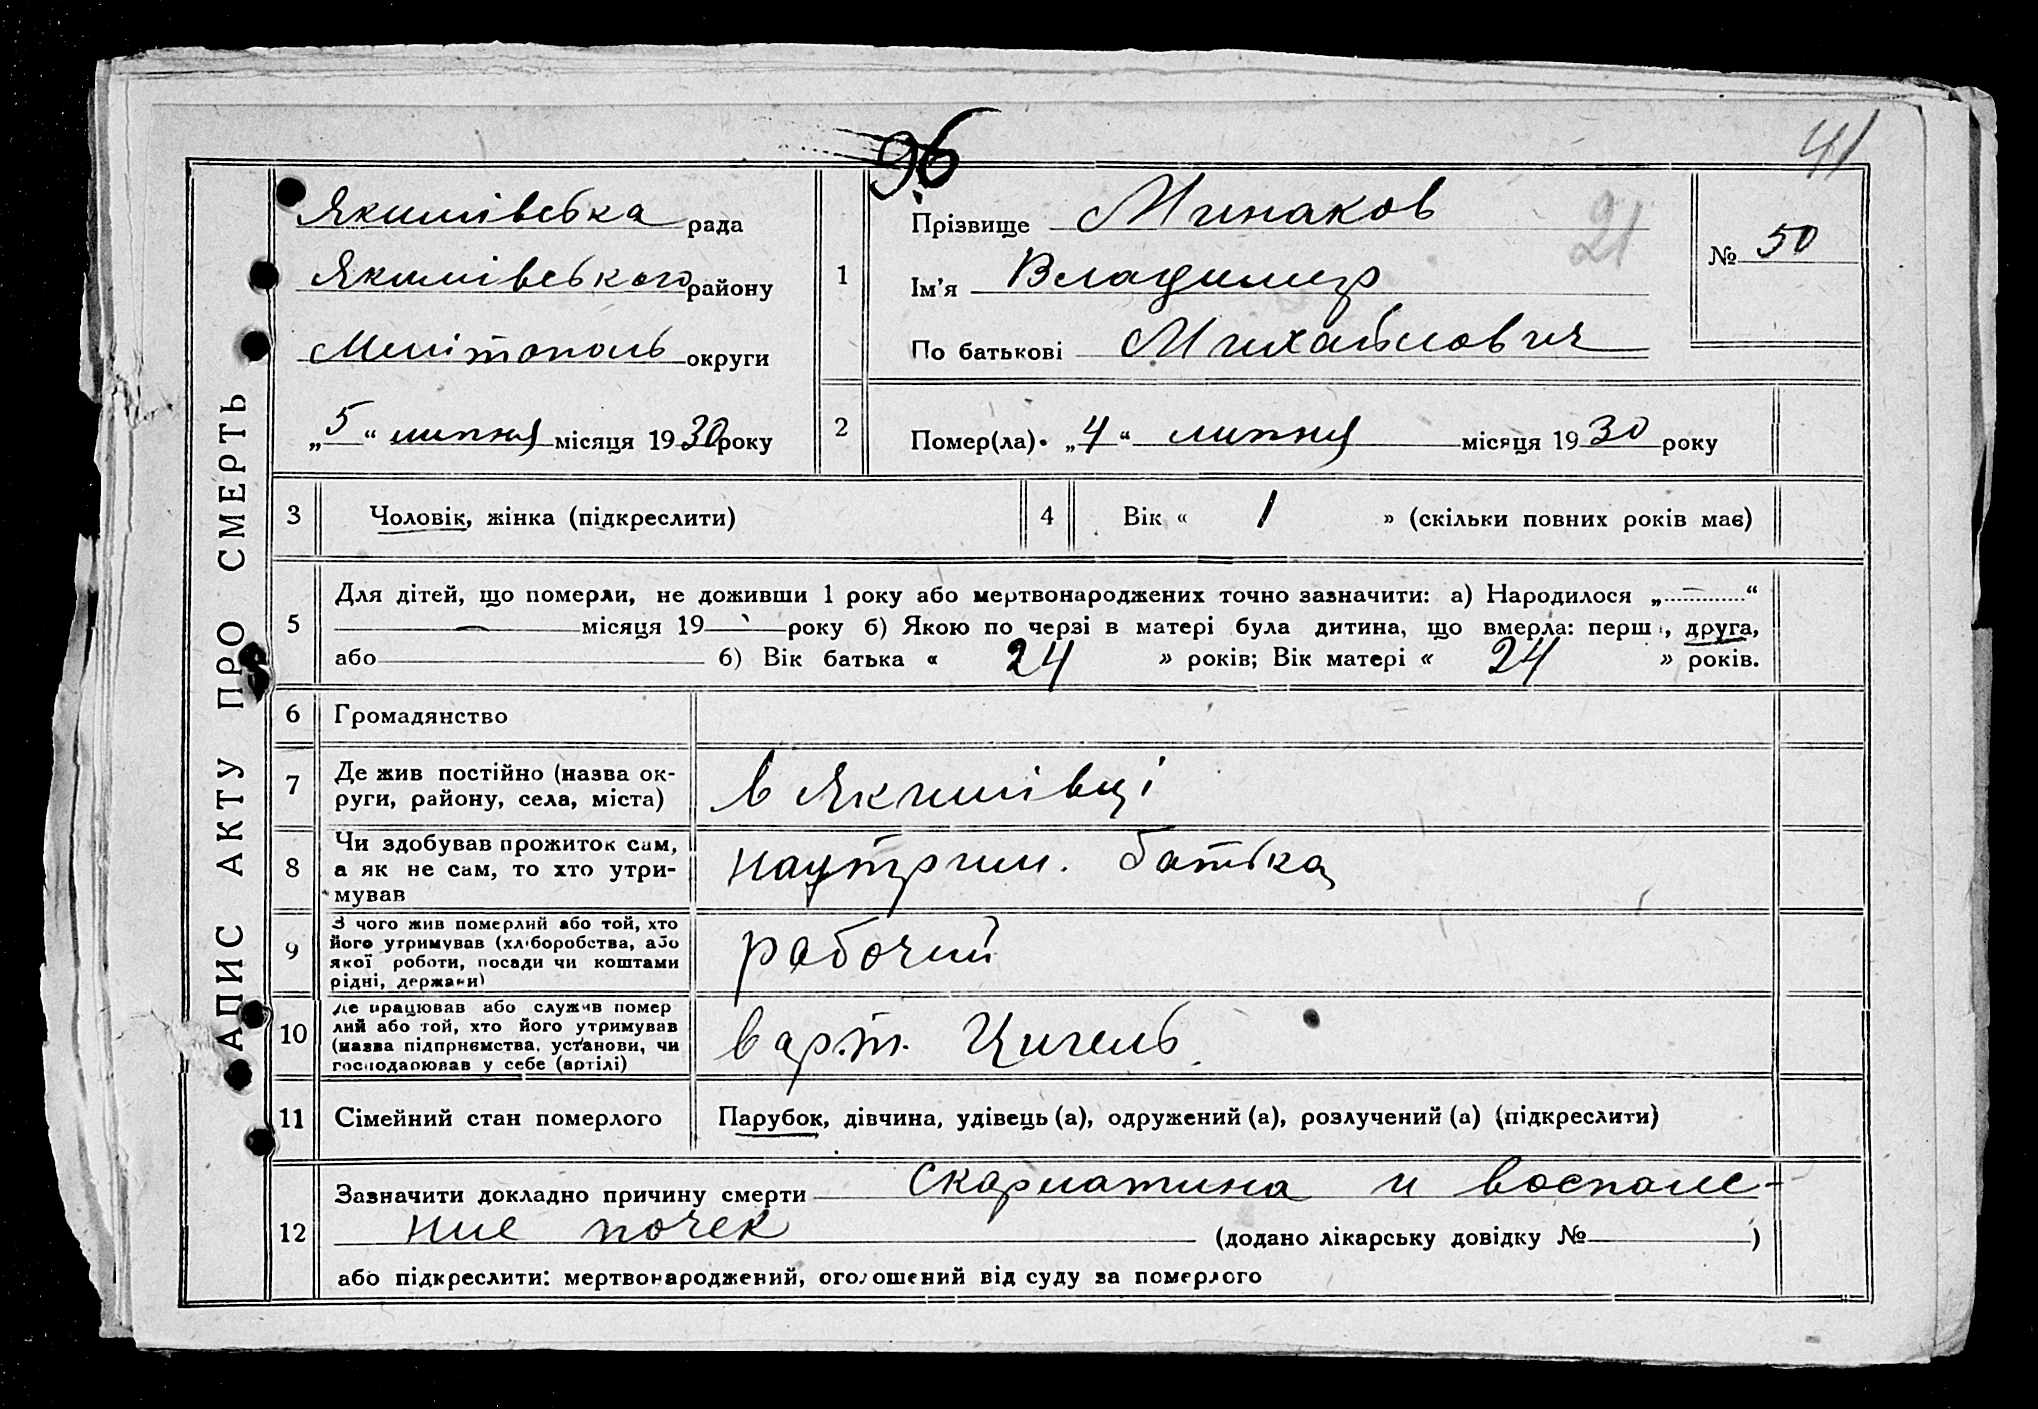 96
41
ЗАПИС АКТУ ПРО СМЕРТЬ
Якимівська рада
Якимівського району
Мелітополь округи
„5“ липня місяця 1930 року
1
Прізвище Минаков
21
Ім’я Владимир
По батькові Михайлович
№ 50
2
Помер(ла) „4“ липня місяця 1930 року
3 Чоловік, жінка (підкреслити)
4 Вік « 1 » (скільки повних років має)
5
Для дітей, що померли, не доживши 1 року або мертвонароджених точно зазначити: а) Народилося „ — “
— місяця 19 року б) Якою по черзі в матері була дитина, що вмерла: перш , друга,
або б) Вік батька « 24 » років; Вік матері « 24 » років.
6 Громадянство
7
Де жив постійно (назва ок-
руги, району, села, міста)
в Якимівці
8
Чи здобував прожиток сам,
а як не сам, то хто утри-
мував
наутрим. батька
9
З чого жив померлий або той, хто
його утримував (хліборобства, або
якої роботи, посади чи коштами
рідні, держави)
рабочий
10
Де працював або служив помер
лий або той, хто його утримував
(назва підприємства, установи, чи
господарював у себе (артілі)
в арт.
11 Сімейний стан померлого
Парубок, дівчина, удівець (а), одружений (а), розлучений (а) (підкреслити)
12
Зазначити докладно причину смерти скарлатина и воспале-
ние почек (додано лікарську довідку № )
або підкреслити: мертвонароджений, оголошений від суду за померлого